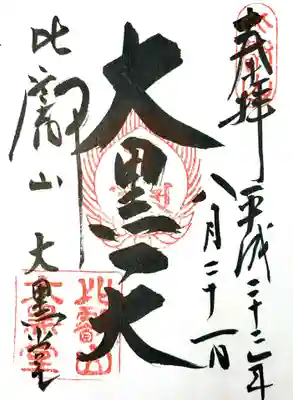 奉拝
平成二十二年
八月二十一日
大黒天
比叡山
大黒堂
比叡山
大黒堂